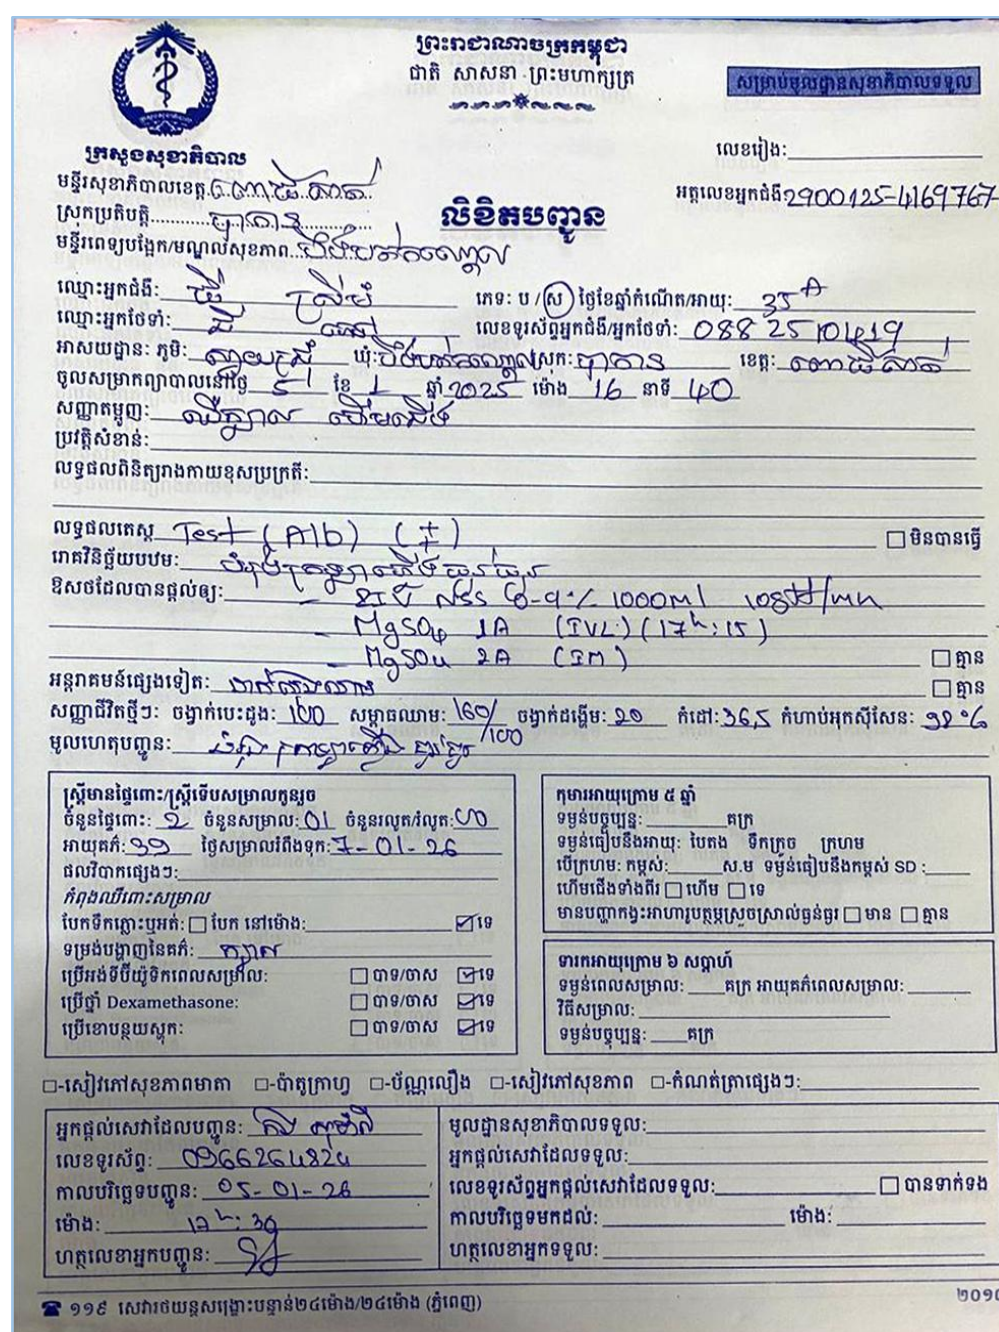 ព្រះរាជាណាចក្រកម្ពុជា
ជាតិ សាសនា ព្រះមហាក្សត្រ
សម្រាប់មូលដ្ឋានសុខាភិបាលទទួល
ក្រសួងសុខាភិបាល
លេខរៀង:
មន្ទីរសុខាភិបាលខេត្ត ពោធិ៍សាត់
អត្តលេខអ្នកជំងឺ 2900125-4169767
ស្រុកប្រតិបត្តិ បាកាន
លិខិតបញ្ជូន
មន្ទីរពេទ្យបង្អែក/មណ្ឌលសុខភាព បឹងបត់កណ្ដោល
ឈ្មោះអ្នកជំងឺ: ភេទ: ប / ស ថ្ងៃខែឆ្នាំកំណើត/អាយុ: 35
ឈ្មោះអ្នកថែទាំ: លេខទូរស័ព្ទអ្នកជំងឺ/អ្នកថែទាំ: 088 25 10419
អាសយដ្ឋាន: ភូមិ: ឃុំ: បឹងបត់កណ្ដោល ស្រុក: បាកាន ខេត្ត: ពោធិ៍សាត់
ចូលសម្រាកព្យាបាលនៅថ្ងៃ ខែ 1 ឆ្នាំ 2025 ម៉ោង 16 នាទី 40
សញ្ញាតម្អូញ: ឈឺក្បាល ហើមជើង
ប្រវត្តិសំខាន់:
លទ្ធផលពិនិត្យរាងកាយខុសប្រក្រតី:
លទ្ធផលតេស្ត Test (Alb) (‡) មិនបានធ្វើ
រោគវិនិច្ឆ័យបឋម: បំរុងក្រឡាភ្លើងធ្ងន់ធ្ងរ
ឱសថដែលបានផ្តល់ឲ្យ: - NSS 0.9% 1000ml
- MgSO4 1A (IVL) (17h:15)
- MgSO4 2A (IM) គ្មាន
អន្តរាគមន៍ផ្សេងទៀត: គ្មាន
សញ្ញាជីវិតថ្មីៗ: ចង្វាក់បេះដូង: 100 សម្ពាធឈាម: 160/100 ចង្វាក់ដង្ហើម: 20 កំដៅ: 36,5 កំហាប់អុកស៊ីសែន: 98%
មូលហេតុបញ្ជូន: បំរុងក្រឡាភ្លើង ធ្ងន់ធ្ងរ
ស្ត្រីមានផ្ទៃពោះ/ស្ត្រីទើបសម្រាលកូនរួច
ចំនួនផ្ទៃពោះ: 2 ចំនួនសម្រាល: 01 ចំនួនរលូត/រំលូត: 00
អាយុគភ៌: 39 ថ្ងៃសម្រាលរំពឹងទុក: 7-01-26
ផលវិបាកផ្សេងៗ:
កំពុងឈឺពោះសម្រាល
បែកទឹកភ្លោះឬអត់: បែក នៅម៉ោង: ទេ
ទម្រង់បង្ហាញនៃគភ៌: ក្បាល
ប្រើអង់ទីប៊ីយ៉ូទិកពេលសម្រាល: បាទ/ចាស ទេ
ប្រើថ្នាំ Dexamethasone: បាទ/ចាស ទេ
ប្រើខោបន្ថយស្លុក: បាទ/ចាស ទេ
កុមារអាយុក្រោម ៥ ឆ្នាំ
ទម្ងន់បច្ចុប្បន្ន: គក្រ
ទម្ងន់ធៀបនឹងអាយុ: បៃតង ទឹកក្រូច ក្រហម
បើក្រហម: កម្ពស់: ស.ម ទម្ងន់ធៀបនឹងកម្ពស់ SD :
ហើមជើងទាំងពីរ ហើម ទេ
មានបញ្ហាកង្វះអាហារូបត្ថម្ភស្រួចស្រាល់ធ្ងន់ធ្ងរ មាន គ្មាន
ទារកអាយុក្រោម ៦ សប្តាហ៍
ទម្ងន់ពេលសម្រាល: គក្រ អាយុគភ៌ពេលសម្រាល:
វិធីសម្រាល:
ទម្ងន់បច្ចុប្បន្ន: គក្រ
-សៀវភៅសុខភាពមាតា -ប៉ាតូក្រាហ្វ -ប័ណ្ណលឿង -សៀវភៅសុខភាព -កំណត់ត្រាផ្សេងៗ:
អ្នកផ្តល់សេវាដែលបញ្ជូន:
លេខទូរស័ព្ទ: 0966264824
កាលបរិច្ឆេទបញ្ជូន: 05-01-26
ម៉ោង: 17h:30
ហត្ថលេខាអ្នកបញ្ជូន:
មូលដ្ឋានសុខាភិបាលទទួល:
អ្នកផ្តល់សេវាដែលទទួល:
លេខទូរស័ព្ទអ្នកផ្តល់សេវាដែលទទួល: បានទាក់ទង
កាលបរិច្ឆេទមកដល់: ម៉ោង:
ហត្ថលេខាអ្នកទទួល:
☎ ១១៩ សេវារថយន្តសង្គ្រោះបន្ទាន់២៤ម៉ោង/២៤ម៉ោង (ភ្នំពេញ)